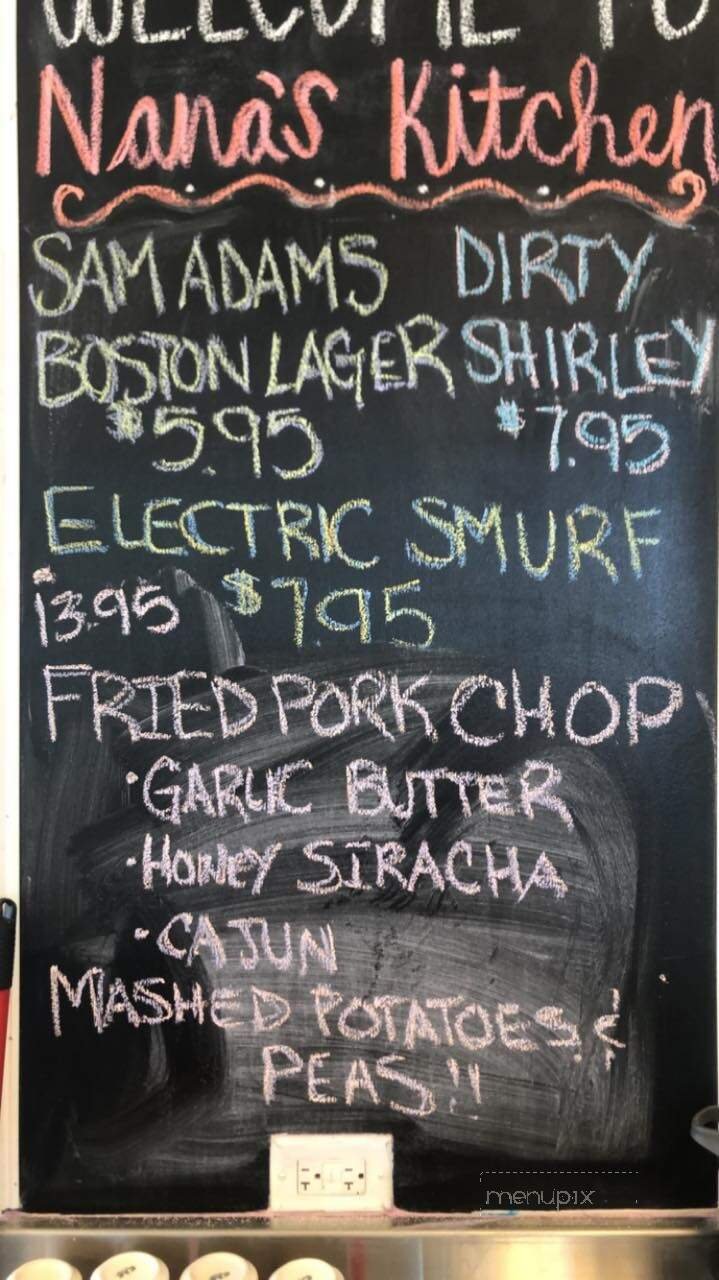 WELCOME TO
Nana's Kitchen
SAM ADAMS
BOSTON LAGER
$5.95
DIRTY
SHIRLEY
$7.95
ELECTRIC SMURF
$7.95
13.95
FRIED PORK CHOP
• GARLIC BUTTER
• HONEY SIRACHA
• CAJUN
MASHED POTATOES &
PEAS!!
menupix